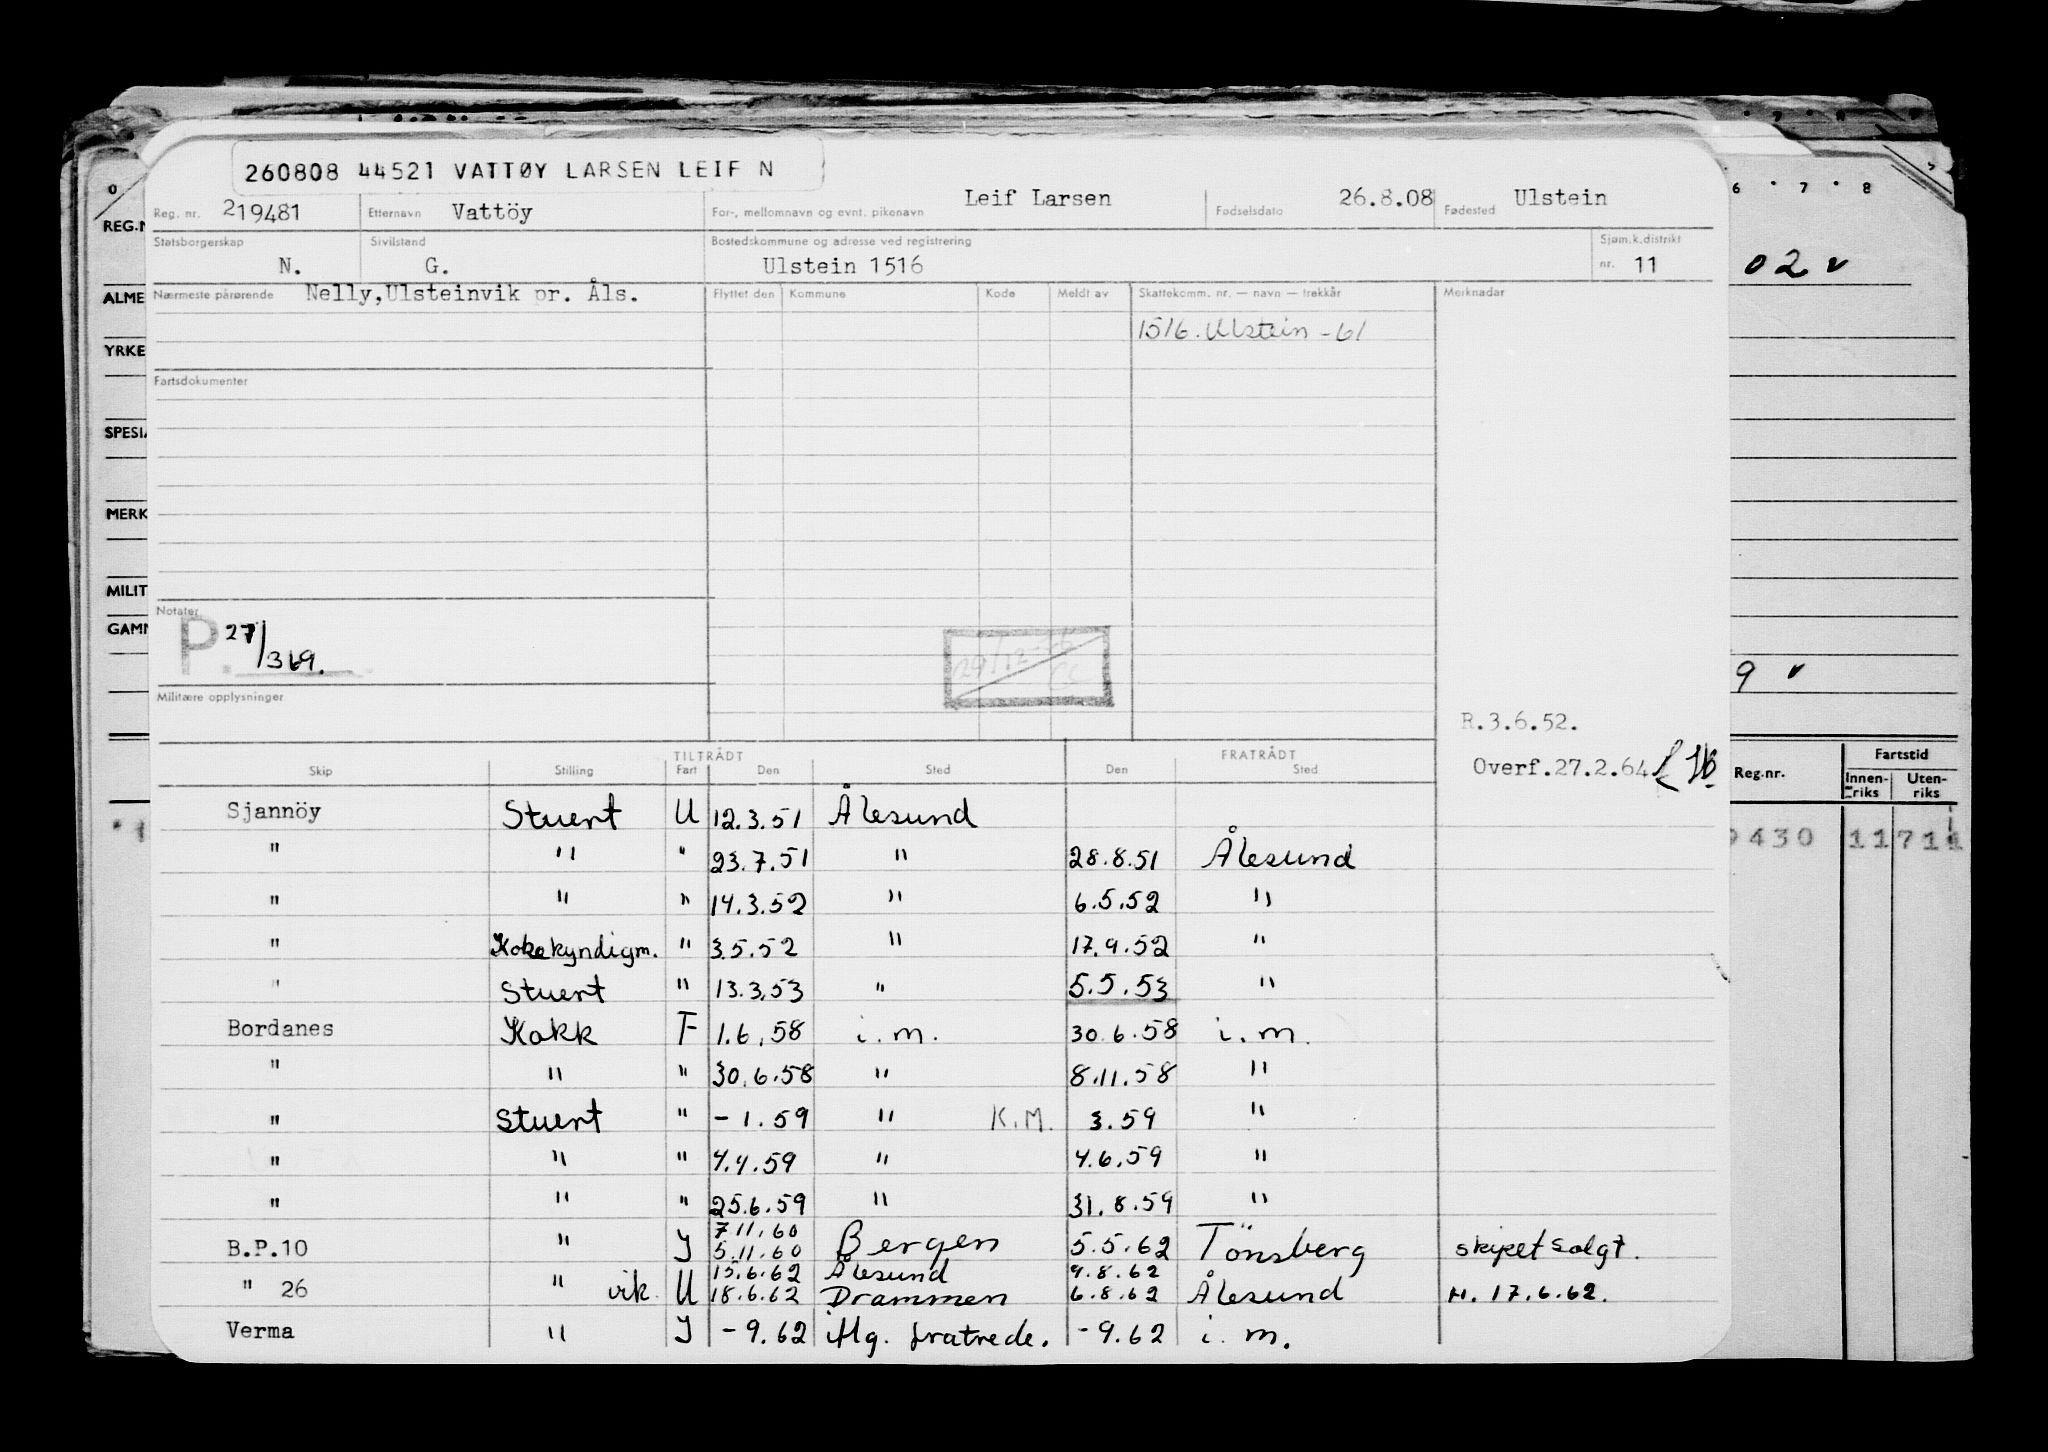 260808 44521 VATTØY LARSEN LEIF N
Reg. nr. 219481 Etternavn Vattöy For-, mellomnavn og evnt. pikenavn Leif Larsen Fødselsdato 26.8.08 Fødested Ulstein
Statsborgerskap N. Sivilstand G. Bostedskommune og adresse ved registrering Ulstein 1516 Sjøm.k.distrikt nr. 11
Nærmeste pårørende Nelly,Ulsteinvik pr. Åls. Flyttet den Kommune Kode Meldt av Skattekomm. nr. — navn — trekkår Merknader
1516. Ulstein -61
Fartsdokumenter
Notater
P. 27/369.
29/12-76
CC
Militære opplysninger
R.3.6.52.
Overf.27.2.64
TILTRÅDT FRATRÅDT
Skip Stilling Fart Den Sted Den Sted
Sjannöy Stuert U 12.3.51 Ålesund
" " " 23.7.51 " 28.8.51 Ålesund
" " " 14.3.52 " 6.5.52 "
" Kokekyndigm. " 3.5.52 " 17.9.52 "
" Stuert " 13.3.53 " 5.5.53 "
Bordanes Kokk F 1.6.58 i.m. 30.6.58 i.m.
" " " 30.6.58 " 8.11.58 "
" Stuert " - 1.59 " K.M. 3.59 "
" " " 4.4.59 " 4.6.59 "
" " " 25.6.59 " 31.8.59 "
7.11.60
B.P.10 " J 5.11.60 Bergen 5.5.62 Tönsberg skipet solgt.
15.6.62 Ålesund 9.8.62
" 26 " vik U 18.6.62 Drammen 6.8.62 Ålesund H. 17.6.62.
Verma " J - 9.62 iflg. fratrede. - 9.62 i.m.
REG.N
ALME
YRKE
SPESIA
MERK
MILIT
GAMM
0
6 7 8
02 v
9 v
Reg.nr. Fartstid
Innen-riks Uten-riks
9430 11 711